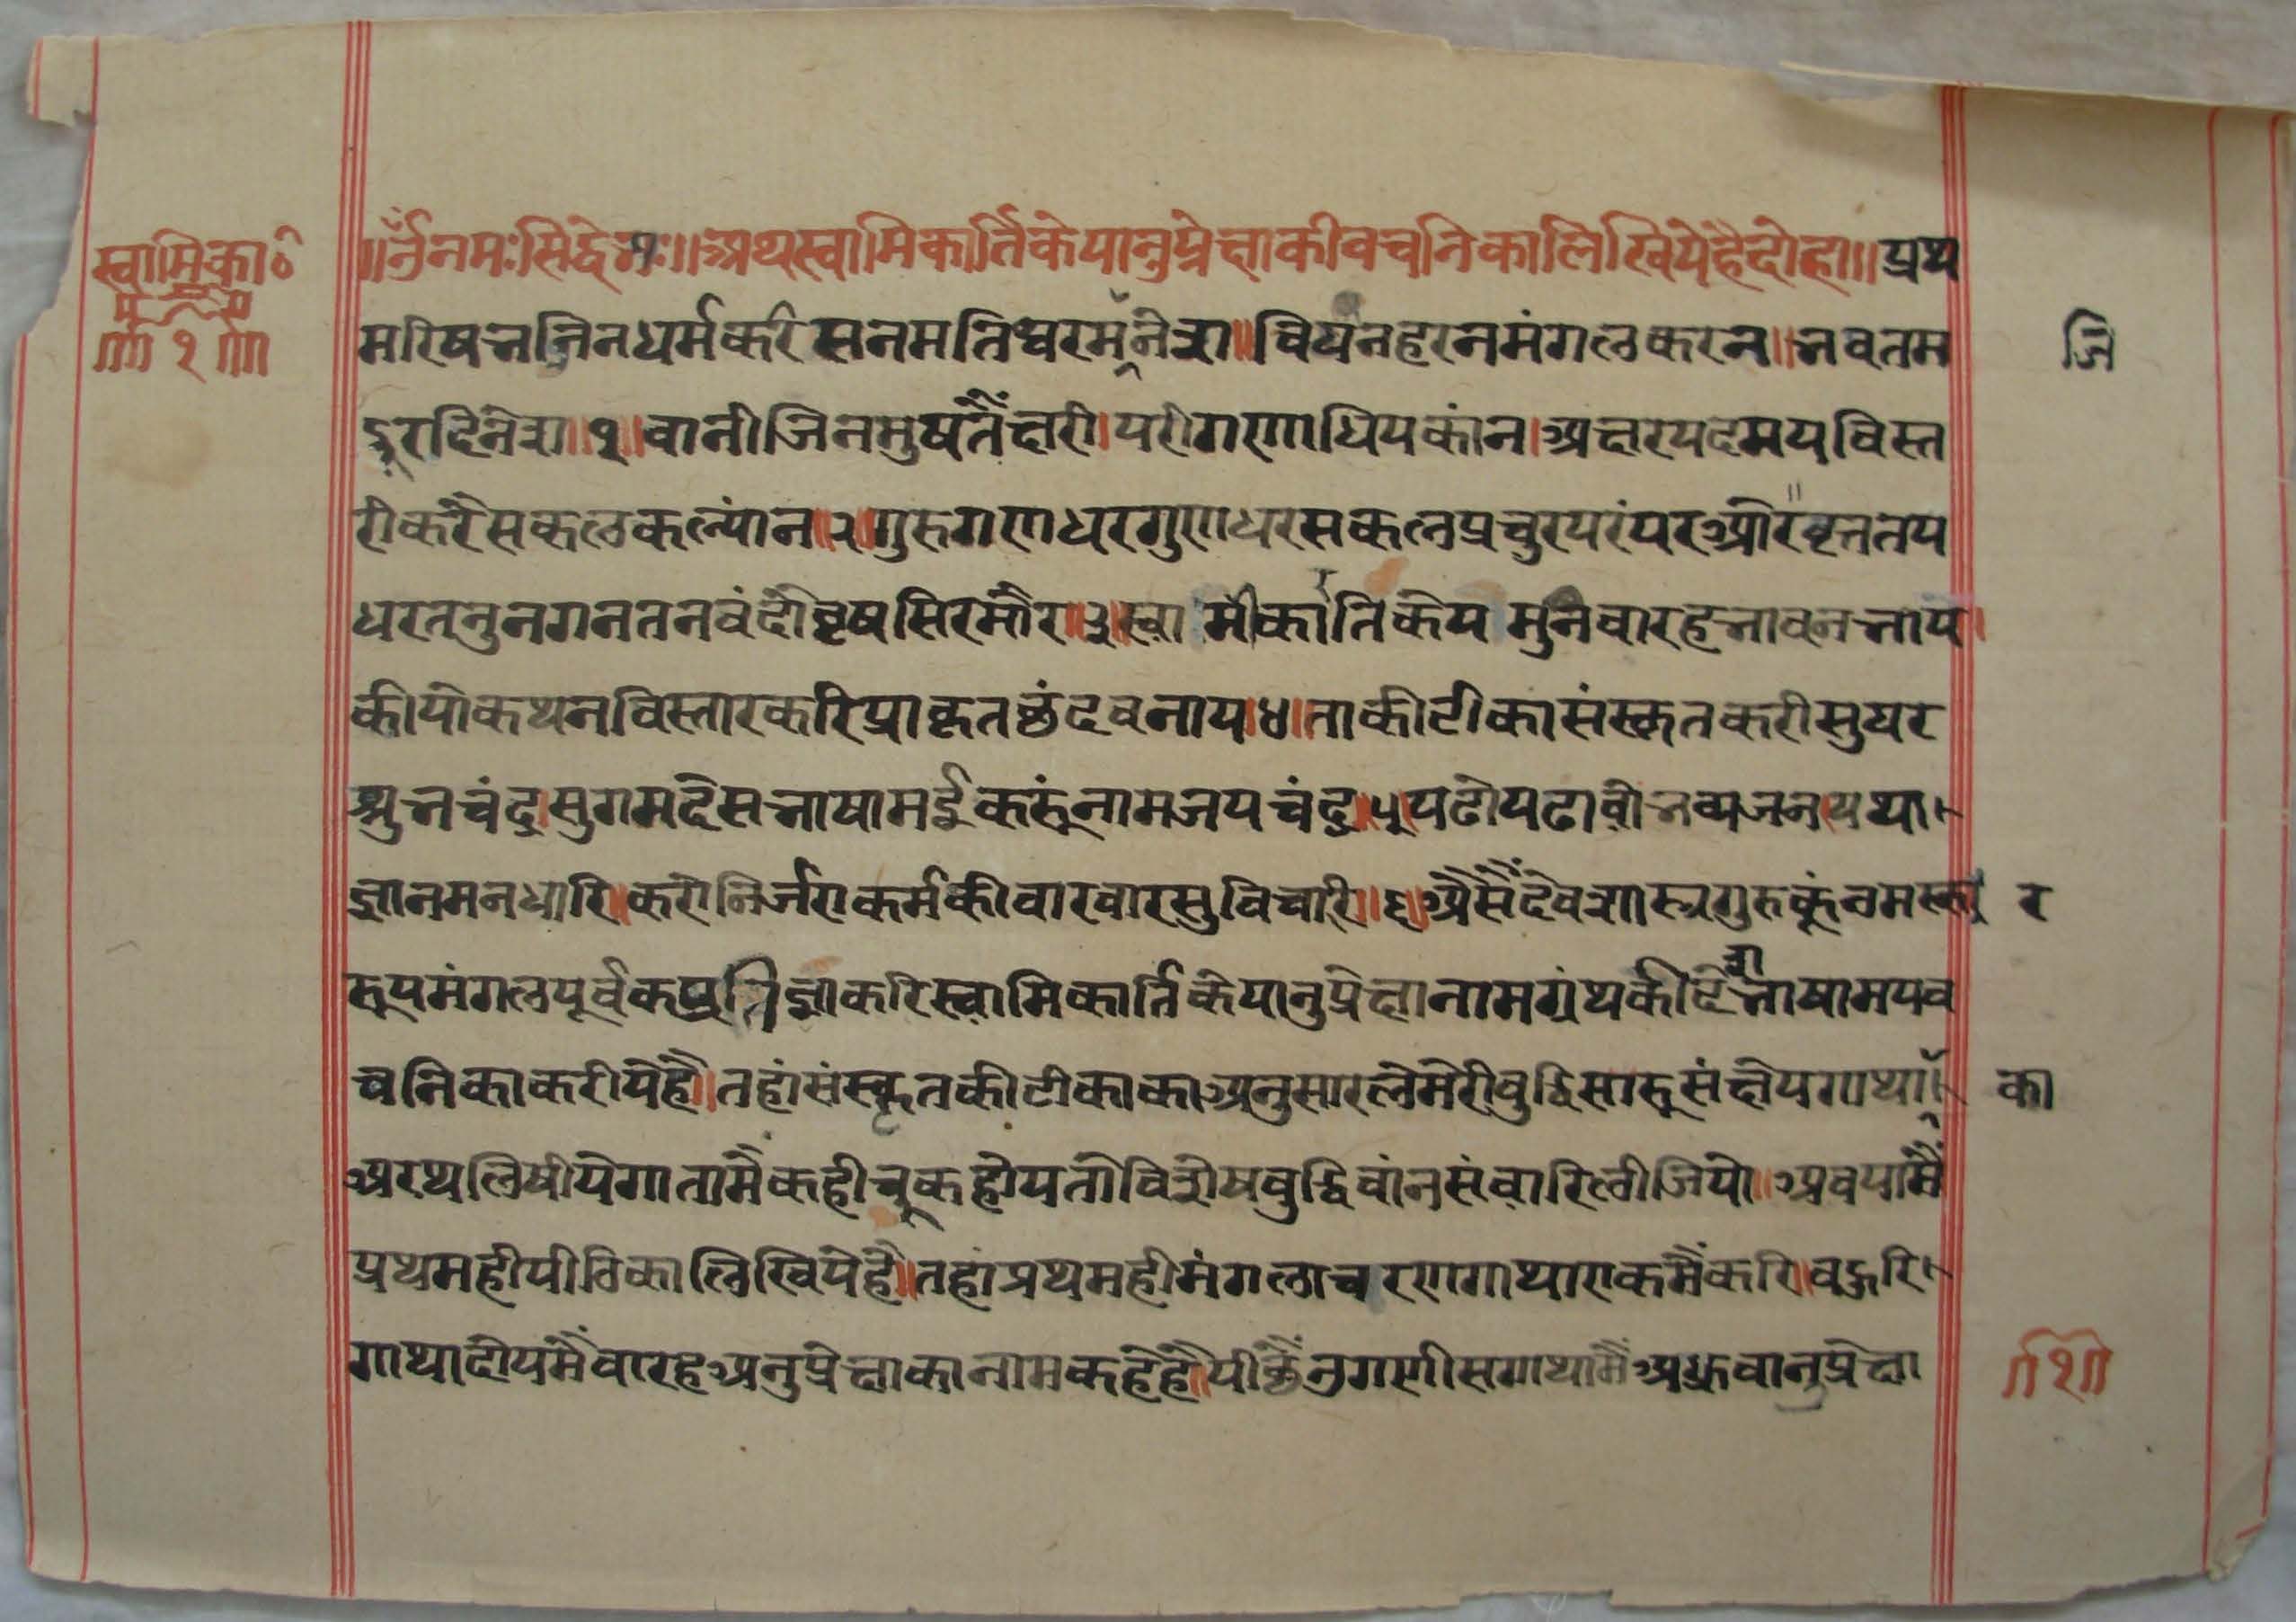 स्वामिका०
॥१॥
॥ॐनमःसिद्धेभ्यः॥अथस्वामिकार्तिकेयानुप्रेक्षाकीवचनिकालिखियेहैदोहा॥प्रथ
मरिषभजिनधर्मकरिसनमतिचरमजिनेश॥विघनहरनमंगलकरन॥भवतम
जि
दूरदिनेश॥१॥वानीजिनमुषतैंक्षरी।परीगणाधिपकांन।अक्षरपदमयविस्त
रीकरैसकलकल्यांन॥२॥गुरुगणधरगुणधरसकलप्रचुरपरंपरऔरवृततप
धरतनुनगनतनवंदौवृषसिरमौर॥३॥स्वामीकार्तिकेयमुनवारहभावनभाय।
कीयोकथनविस्तारकरिप्राकृतछंदवनाय।४।ताकीटीकासंस्कृतकरीसुघर
शुभचंद्र।सुगमदेसभाषामईकरूंनामजयचंद्र।५।पढोपढावोभव्यजनयथा
ज्ञानमनधारि॥करोनिर्जराकर्मकीवारवारसुविचारि॥६॥ऐसैंदेवशास्त्रगुरुकूंनमस्का र
रूपमंगलपूर्वकप्रतिज्ञाकरिस्वामिकार्तिकेयानुप्रेक्षानामग्रंथकीदेशभाषामयव
चनिकाकरीयेहै।तहांसंस्कृतकीटीकाकाअनुसारलेमेरीवुद्धिसारूसंक्षेपगाथा का
अरथलिषीयेगातामैंकहीचूकहोयतोविशेषवुद्धिवांनसंवारिलीजियो॥अवयामैं
प्रथमहीपीठिकालिखियेहै॥तहांप्रथमहीमंगलाचरणगाथाएकमैंकरि।वहुरि
गाथादोयमैंवारहअनुप्रेक्षाकानामकहेहै।पीछैंउगणीसगाथामैंअध्रुवानुप्रेक्षा
॥१॥